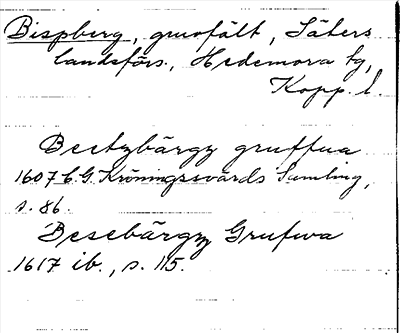 Bispberg, gruvfält, Säters
landsförs., Hedemora tg,
Kopp. l.
Beetzbärgz gruffua
1607 C.G. Kröningssvärds Samling,
s. 86.
Besebärgz Grufwa
1617 ib., s. 115.